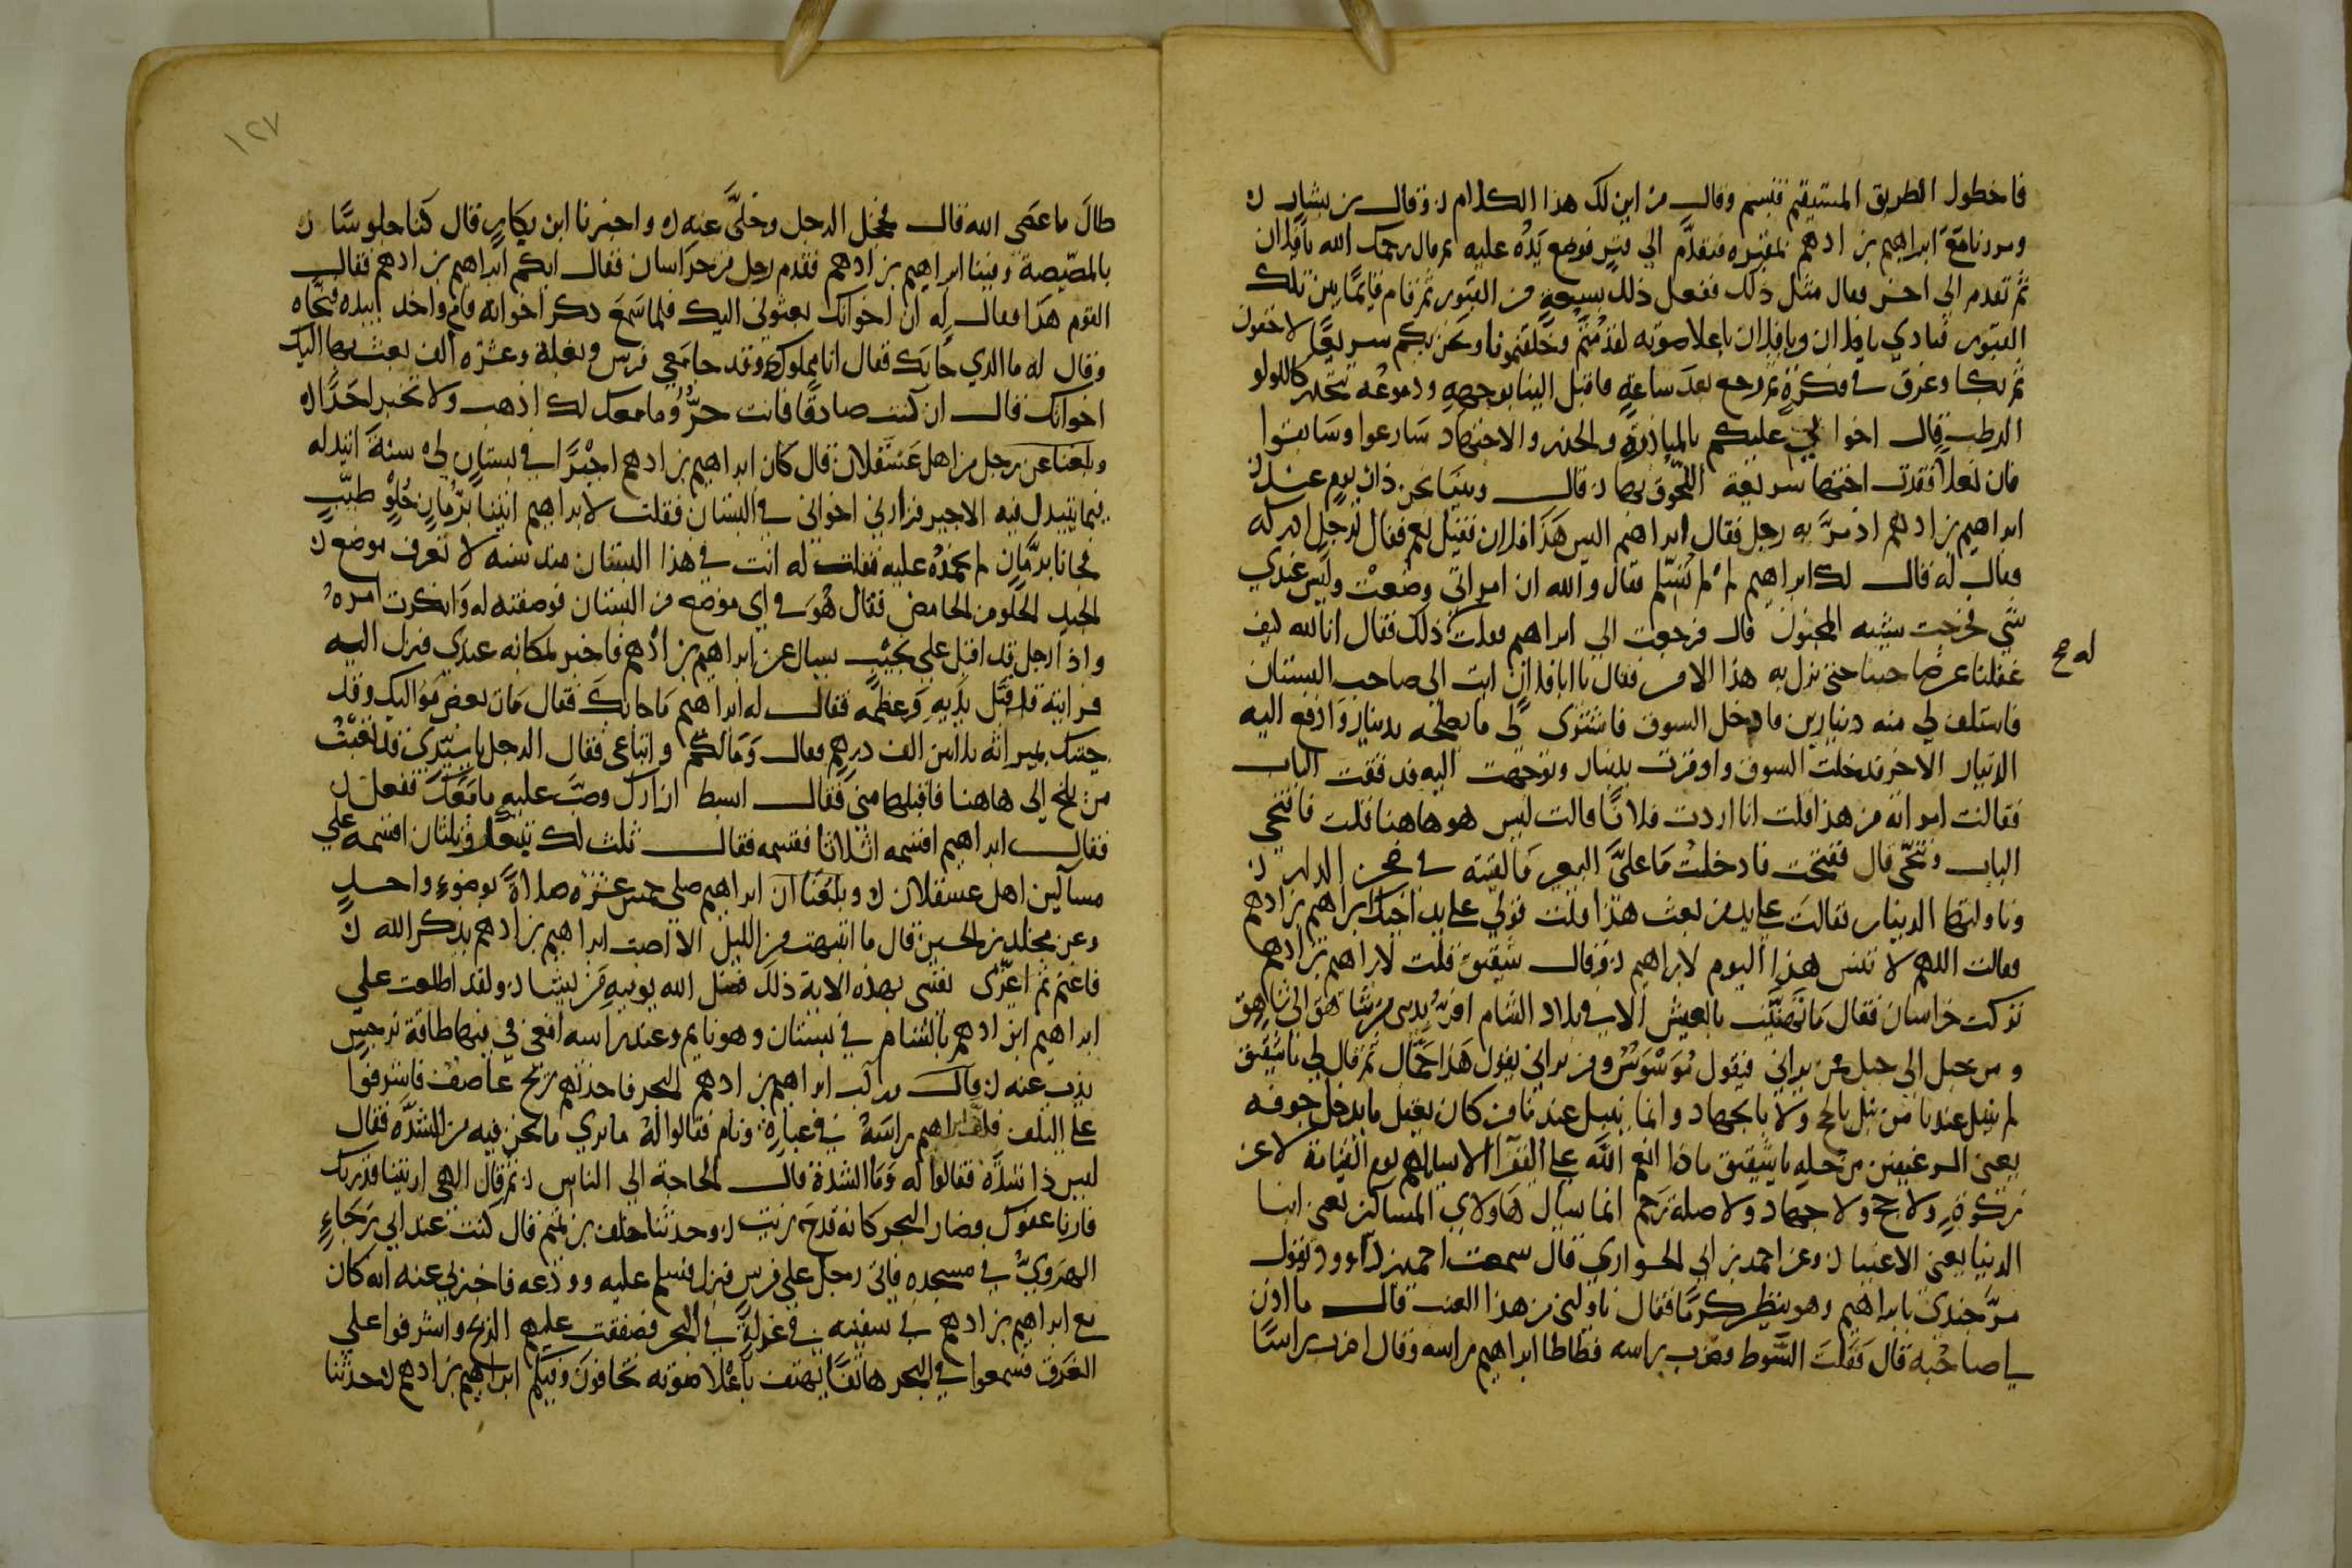 فاخطول الطريق المستقيم فتبسم وقال من اين لك هذا الكلام ه وقال بن بشار ه
ومررنا مع ابراهيم بن ادهم بمقبره فتقدم الي قبر فوضع يده عليه ثم قال رحمك الله يا فلان
ثم تقدم الي اخر فقال مثل ذلك ففعل ذلك بسبعة من القبور ثم قام قايما بين تلك
القبور فنادي يا فلان ويا فلان باعلا صوته لقد متم وخلفتمونا ونحن بكم سريعا لاحقون
ثم بكا وغرق في فكرة ثم رجع بعد ساعة فاقبل الينا بوجهه ودموعه تتحدر كاللولو
الرطب فقال اخواني عليكم بالمبادرة والحذر والاجتهاد سارعوا وسابقوا
فان نعلا فقدت اختها سريعة اللحوق بها ه قال وبينا نحن ذات يوم عند
ابراهيم بن ادهم اذ مر به رجل فقال ابراهيم اليس هذا فلان فقيل نعم فقال لرجل ادركه
فقال له قال لك ابراهيم لم لم تسلم فقال والله ان امراتي وضعت وليس عندي
شي فخرجت شبيه المجنون قال فرجعت الي ابراهيم فقلت ذلك فقال انا لله كيف
له صح
غفلنا عن صاحبنا حتى نزل به هذا الامر فقال يا ابا فلان ايت الى صاحب البستان
فاستلف لي منه دينارين فادخل السوق فاشتري له ما يصلحه بدينار وادفع اليه
الدينار الاخر فدخلت السوق واوقرت بدينار وتوجهت اليه فدققت الباب
فقالت امراته من هذا قلت انا اردت فلانا قالت ليس هو هاهنا قلت فافتحي
الباب وتنحي قال ففتحت فادخلت ما علي البعير فالقيته في صحن الدار ه
وناولتها الدينار فقالت علي يد من بعث هذا قلت قولي علي يد اخيك ابراهيم بن ادهم
فقالت اللهم لا تنس هذا اليوم لابراهيم ه وقال شقيق قلت لابراهيم بن ادهم
تركت خراسان فقال ما تهنيت بالعيش الا في بلاد الشام افر بديني من شاهق الي شاهق
ومن جبل الي جبل فمن يراني فيقول موسوس ومن يراني يقول هذا حمال ثم قال لي يا شقيق
لم ينبل عندنا من نبل بالحج ولا بالجهاد وانما نبل عندنا من كان يعقل ما يدخل جوفه
يعني الرغيفين من حله يا شقيق ماذا انعم الله علي الفقرا لا يسالهم يوم القيامة لا عن
زكوة ولا حج ولا جهاد ولا صلة رحم انما يسال هاولاي المساكين يعني ابنا
الدنيا يعني الاغنيا ه وعن احمد بن ابي الحواري قال سمعت احمد بن داوود يقول
مر جندي بابراهيم وهو ينظر كرما فقال ناولني من هذا العنب قال ما اذن
لي صاحبه قال فقلب السوط وضرب براسه فطاطا ابراهيم راسه وقال اضرب راسا
١٢٧
طال ما عصى الله قال فخجل الرجل وخلى عنه ه واخبرنا ابن بكار قال كنا جلوسا ه
بالمصيصة وفينا ابراهيم بن ادهم فقدم رجل من خراسان فقال ايكم ابراهيم بن ادهم فقال
القوم هذا فقال له ان اخوانك بعثوني اليك فلما سمع ذكر اخوانه قام واخذ بيده فنحاه
وقال له ما الذي جا بك فقال انا مملوك وقد جا معي فرس وبغلة وعشرة الف بعث بها اليك
اخوانك قال ان كنت صادقا فانت حر وما معك لك اذهب ولا تخبر احدا ه
وبلغنا عن رجل من اهل عسقلان قال كان ابراهيم بن ادهم اجيرا في بستان لي سنة اتبدله
فيما يتبدل فيه الاجير فزارني اخواني في البستان فقلت لابراهيم ايتنا برمان حلو طيب
فجانا برمان لم نحمده عليه فقلت له انت في هذا البستان منذ سنه لا تعرف موضع ه
الجيد الحلو من الحامض فقال هو في اي موضع من البستان فوصفته له وانكرت امره
واذا رجل قد اقبل علي نجيب يسال عن ابراهيم بن ادهم فاخبر بمكانه عندي فنزل اليه
فرايته قد قبل يديه وعظمه فقال له ابراهيم ما جا بك فقال مات بعض مواليك وقد
جيتك بميراثه ثلاثين الف درهم فقال وما لكم واتباعي فقال الرجل يا سيدي قد تعبت
من بلخ الى هاهنا فاقبلها مني فقال ابسط ازارك وصب عليه ما معك ففعل ه
فقال ابراهيم اقسمه اثلاثا فقسمه فقال ثلث لك وثلثان اقسمه علي
مساكين اهل عسقلان ه وبلغنا ان ابراهيم صلى خمس عشرة صلاة بوضوء واحد
وعن مخلد بن الحسين قال ما انتبهت من الليل الا اصبت ابراهيم بن ادهم يذكر الله ه
فاغتم ثم اعزي نفسي بهذه الاية ذلك فضل الله يوتيه من يشا ه ولقد اطلعت علي
ابراهيم ابن ادهم بالشام في بستان وهو نايم وعند راسه افعى في فيها طاقة نرجس
يذب عنه ه قال ركب ابراهيم بن ادهم البحر فاخذتهم ريح عاصف فاشرفوا
علي التلف فلف ابراهيم راسه في عباءة ونام فقالوا له ما تري ما نحن فيه من الشدة فقال
ليس ذا شدة فقالوا له وما الشدة قال الحاجة الي الناس ه ثم قال الهي اريتنا قدرتك
فارنا عفوك فصار البحر كانه قدح زيت ه وحدثنا خلف بن تميم قال كنت عند ابي رجاء
الهروي في مسجده فاتي رجل علي فرس فنزل فسلم عليه وودعه فاخبرني عنه انه كان
مع ابراهيم بن ادهم في سفينه في غزاة في البحر فصفقت عليهم الريح واشرفوا علي
الغرق فسمعوا في البحر هاتفا يهتف باعلا صوته تخافون وفيكم ابراهيم بن ادهم ه حدثنا